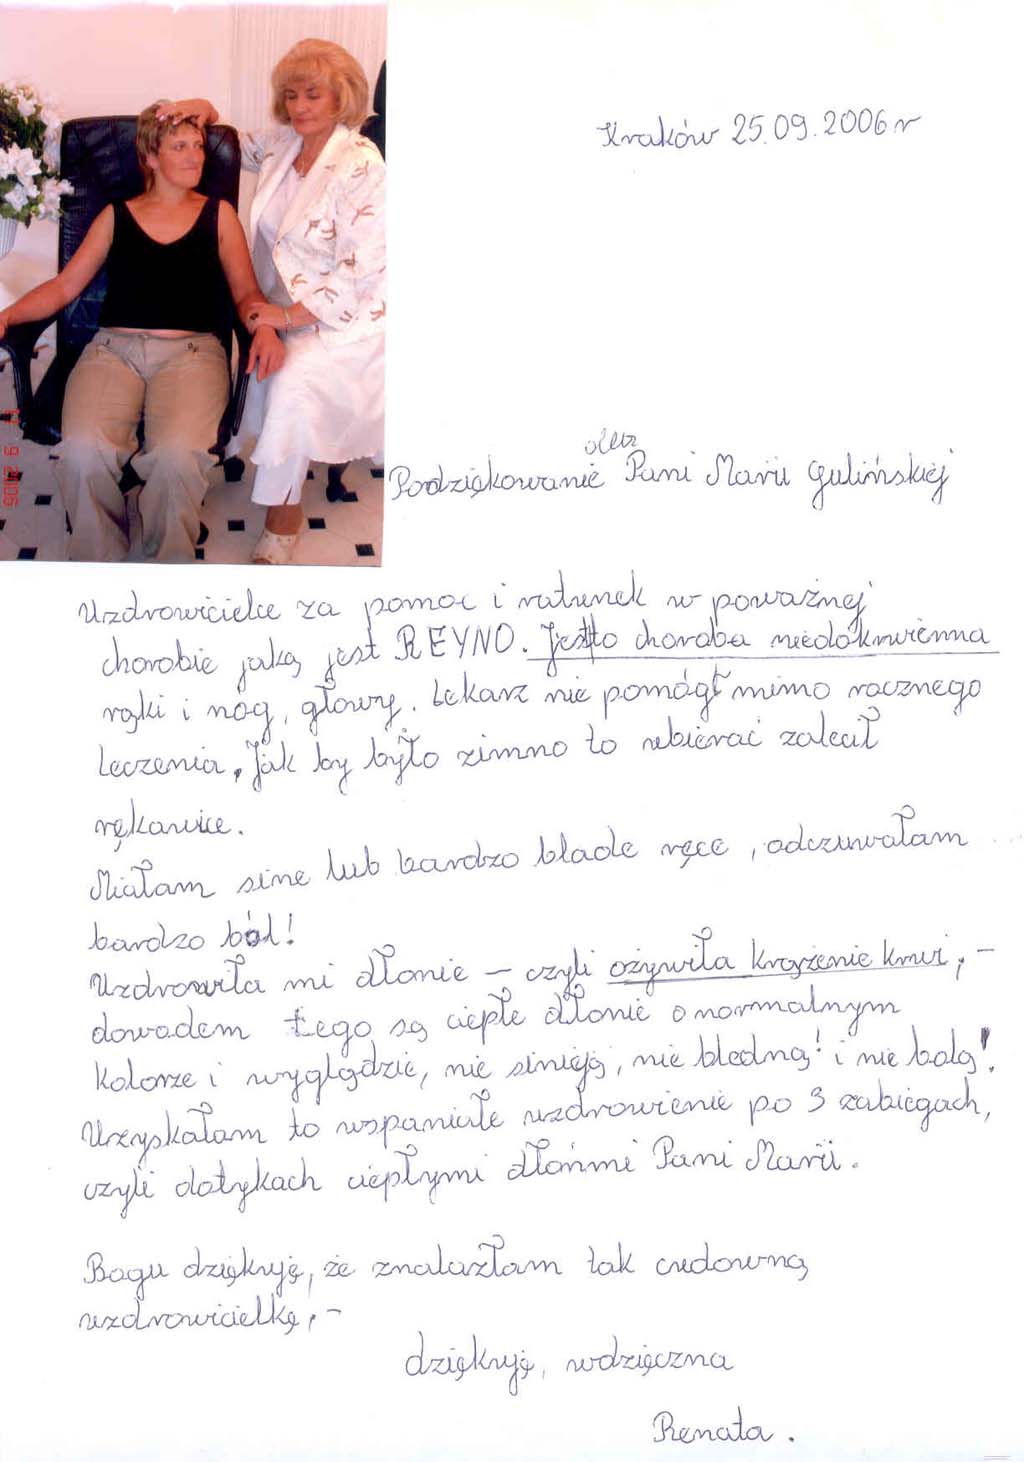 Kraków 25.09.2006 r
dla
Podziękowanie Pani Marii Gulińskiej
Uzdrowicielce za pomoc i ratunek w poważnej
chorobie jaką jest REYNO. Jest to choroba niedokrwienna
rąki i nóg, głowy. Lekarz nie pomógł mimo rocznego
leczenia, Jak by było zimno to ubierać zalecił
rękawice.
Miałam sine lub bardzo blade ręce, odczuwałam
bardzo ból!
Uzdrowiła mi dłonie – czyli ożywiła krążenie krwi, –
dowodem tego są ciepłe dłonie o normalnym
kolorze i wyglądzie, nie sinieją, nie bledną! i nie bolą!
Uzyskałam to wspaniałe uzdrowienie po 3 zabiegach,
czyli dotykach ciepłymi dłońmi Pani Marii.
Bogu dziękuję, że znalazłam tak cudowną
uzdrowicielkę, –
dziękuję, wdzięczna
Renata.